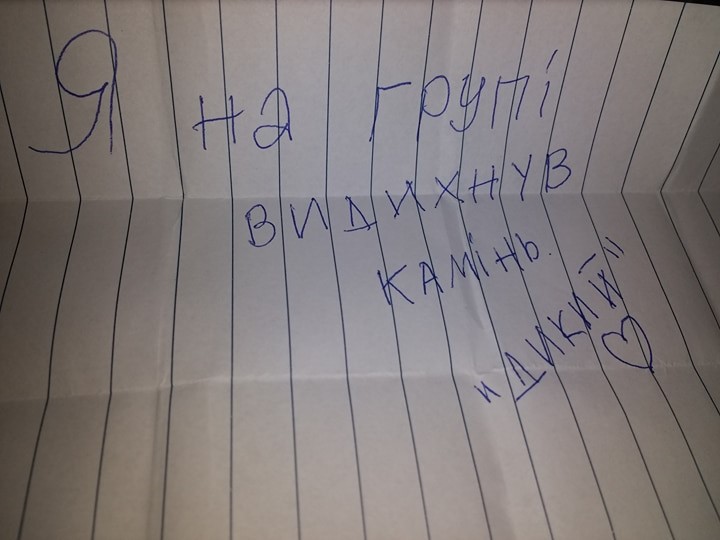 Я на групі
видихнув
камінь.
"Дикий"